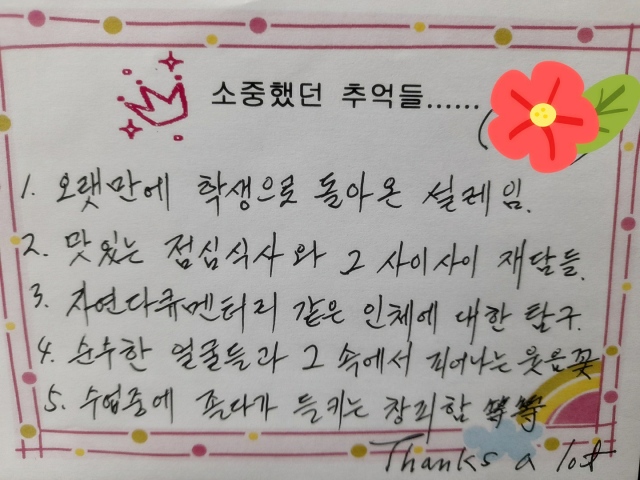 소중했던 추억들......
1. 오랫만에 학생으로 돌아온 설레임.
2. 맛있는 점심식사와 그 사이사이 재담들.
3. 자연다큐멘터리 같은 인체에 대한 탐구.
4. 순수한 얼굴들과 그 속에서 피어나는 웃음꽃
5. 수업중에 졸다가 들키는 창피함 등등
Thanks a lot